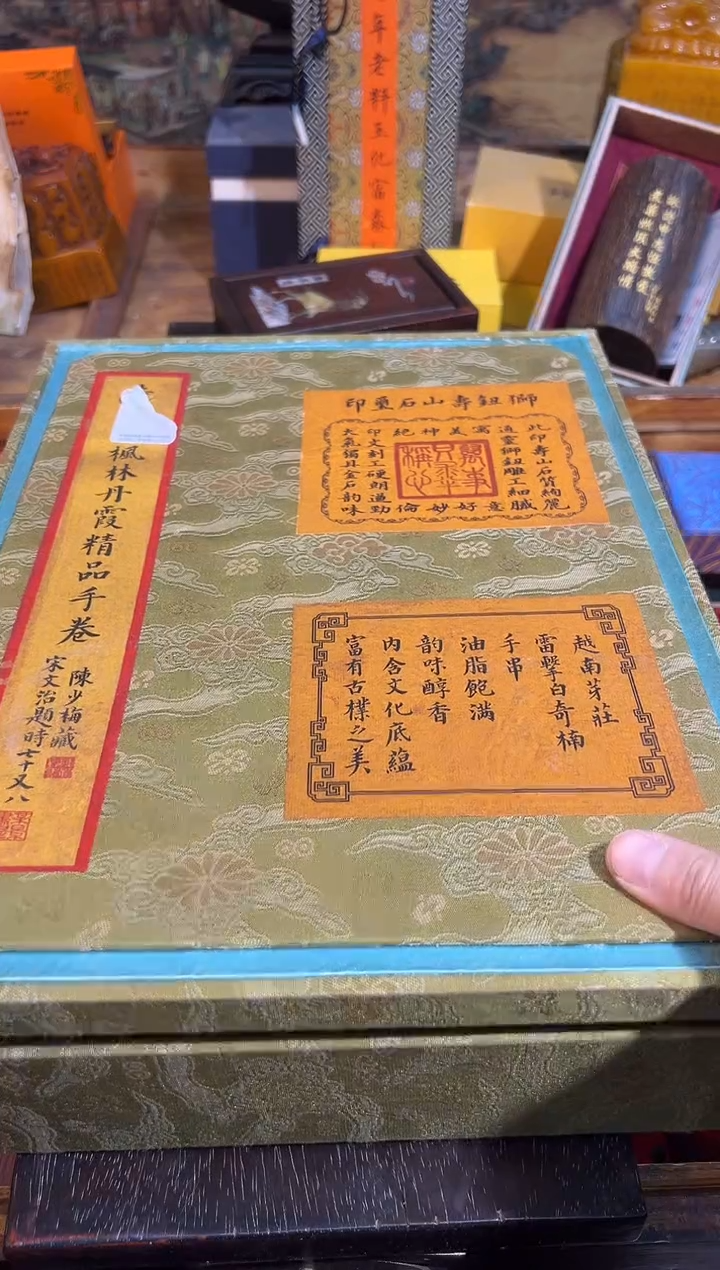 年老料
楓林丹霞精品手卷
陳少梅藏
宋文治題時七十又八
獅鈕壽山石璽印
此印壽山石質絢麗
通靈獅鈕雕工細膩
寓意
美好
神妙
絕倫
印文刻工硬朗遒勁
大氣獨具金石韵味
萬事只求半稱心
越南芽莊
雷擊白奇楠
手串
油脂飽滿
韵味醇香
内含文化底蘊
富有古樸之美